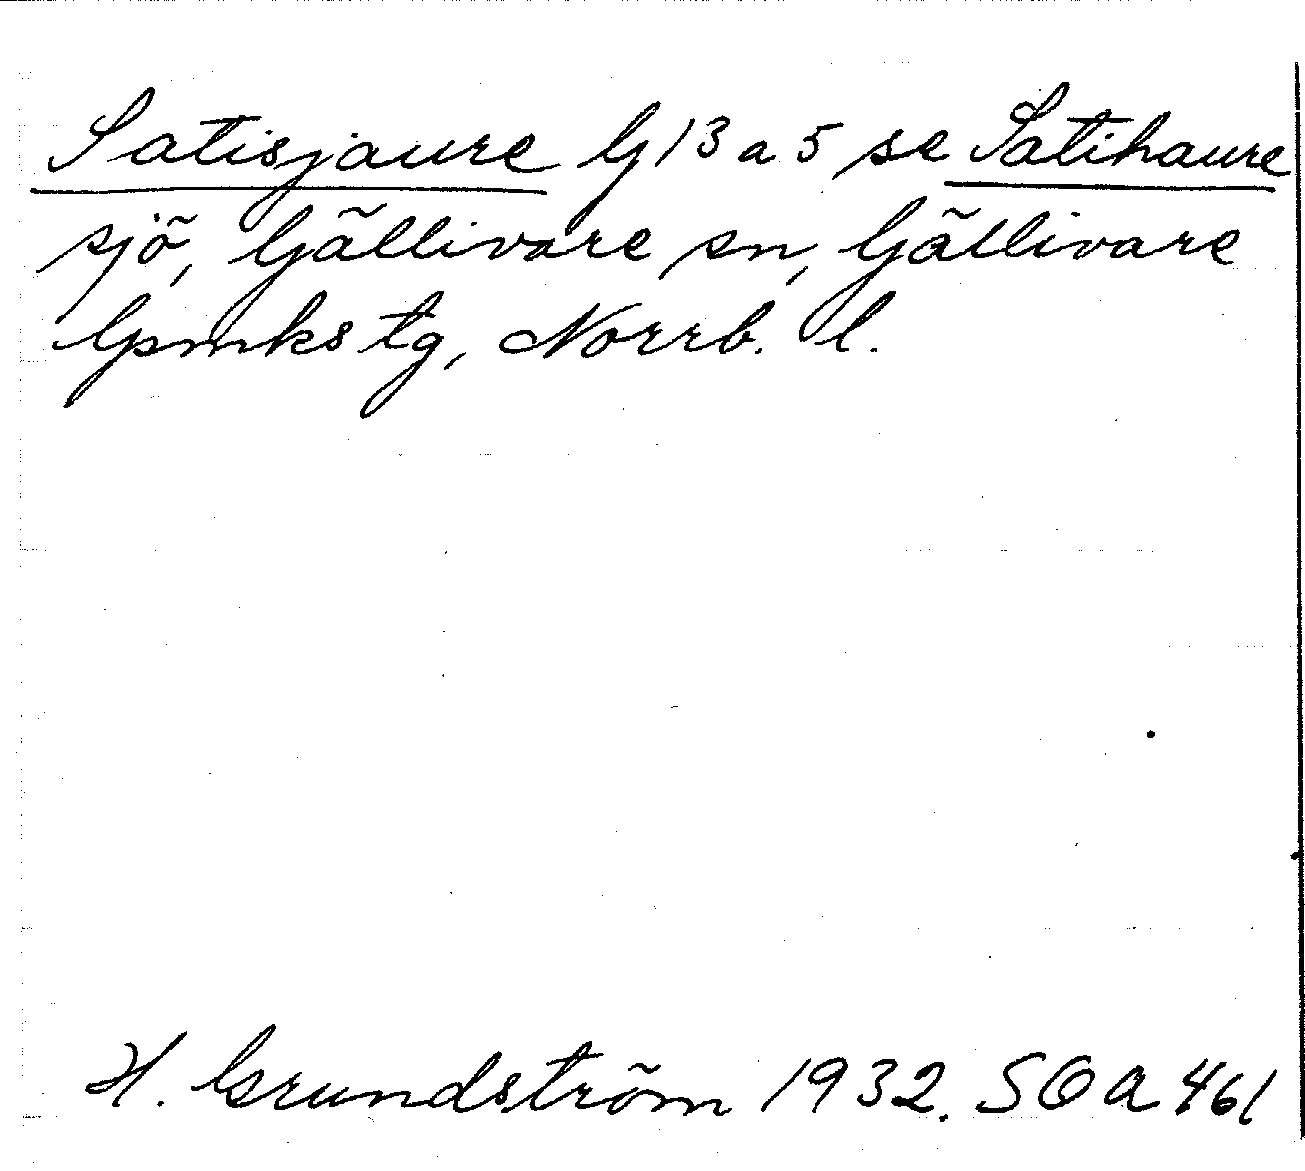 Satisjaure G 13 a 5 se Satihaure
sjö, Gällivare sn, Gällivare
lpmks tg, Norrb. l.
H. Grundström 1932. SOA 461